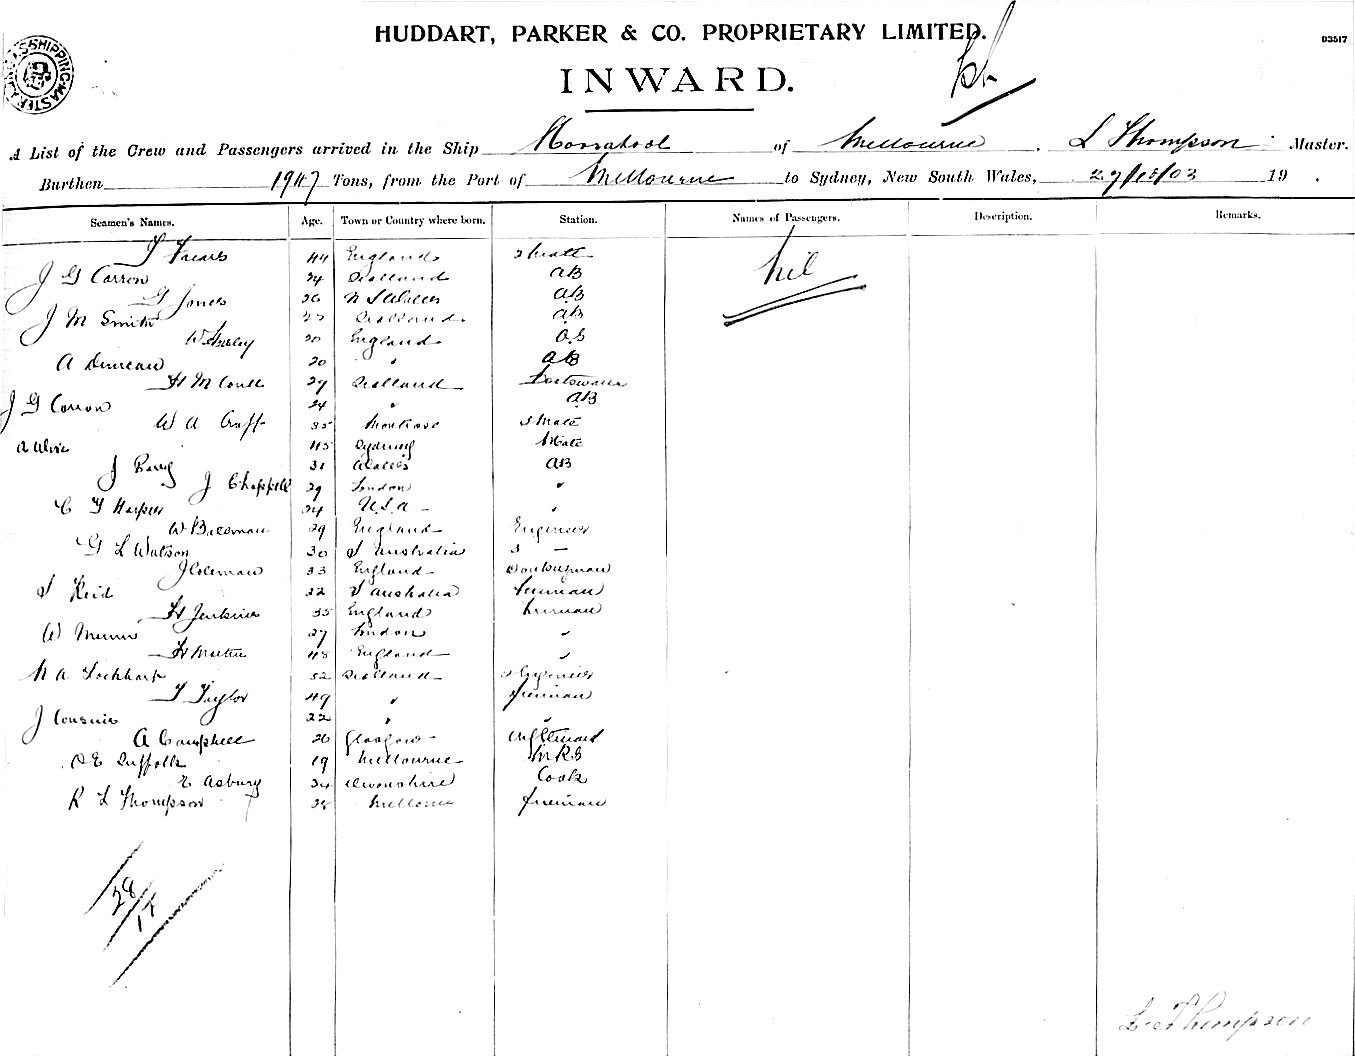 HUDDART, PARKER & CO. PROPRIETARY LIMITED.
D3517
INWARD.
A List of the Crew and Passengers arrived in the Ship of Melbourne, L Thompson Master.
Burthen 1947 Tons, from the Port of Melbourne to Sydney, New South Wales, 19 .
Seamen's Names. Age. Town or Country where born. Station. Names of Passengers. Description. Remarks.
44 England nil
J G Carron 24 Scotland AB
G Jones 26 N S Wales AB
J M Smith Scotland AB
20 England OS
A Duncan 20 " AB
29 Scotland
J G Carron 24 " AB
W A Croft 35 Montrose
45 Sydney Mate
J Barry 31 Wales AB
J Chappell 29 London "
C F Harper 24 U.S.A "
W Bateman 29 England Engineer
G L Watson 30 S Australia
J Coleman 33 England Donkeyman
S Reid 22 S Australia Fireman
H Jenkins 35 England Fireman
W Munro 27 London "
48 England "
N A Lockhart 52 Scotland Engineer
T Taylor 49 " Fireman
J Cousins 22 " "
A Campbell 26 Glasgow
E Suffolk 19 Melbourne
E Asbury 34 Devonshire Cook
R L Thompson 28 Melbourne Fireman
28/14
L. Thompson